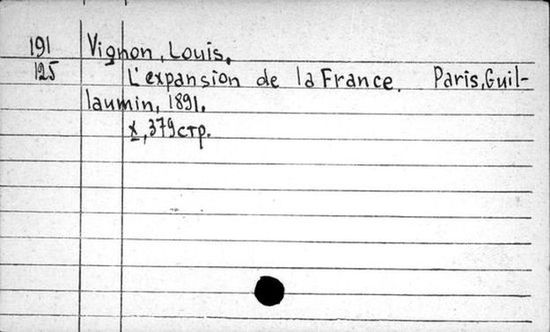 191 Vignon, Louis.
125 L'expansion de la France. Paris, Guil-
laumin, 1891.
x, 379 стр.